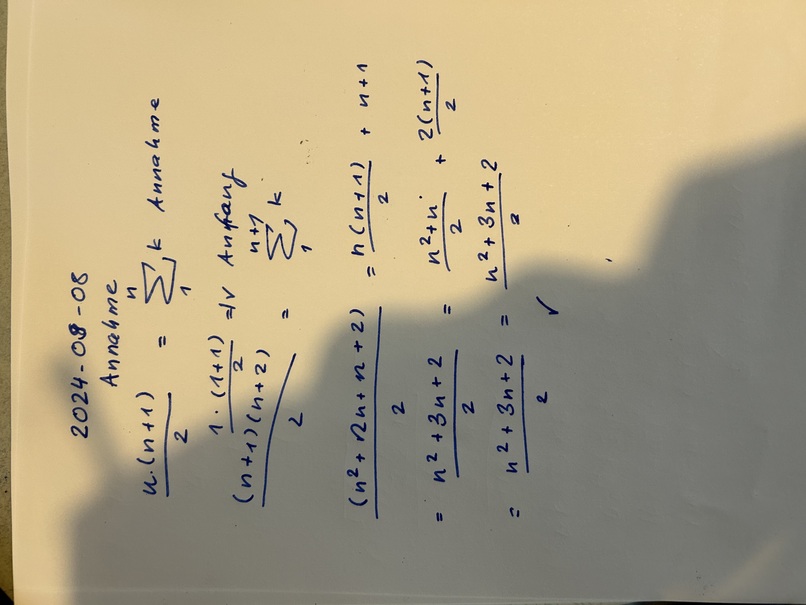 2024-08-08
Annahme
n·(n+1)/2 = n∑1 k Annahme
1·(1+1)/2 = 1 ✓ Anfang
(n+1)(n+2)/2 = n+1∑1 k
(n²+2n+n+2)/2 = n(n+1)/2 + n+1
= n²+3n+2/2 = n²+n/2 + 2(n+1)/2
= n²+3n+2/2 = n²+3n+2/2
✓